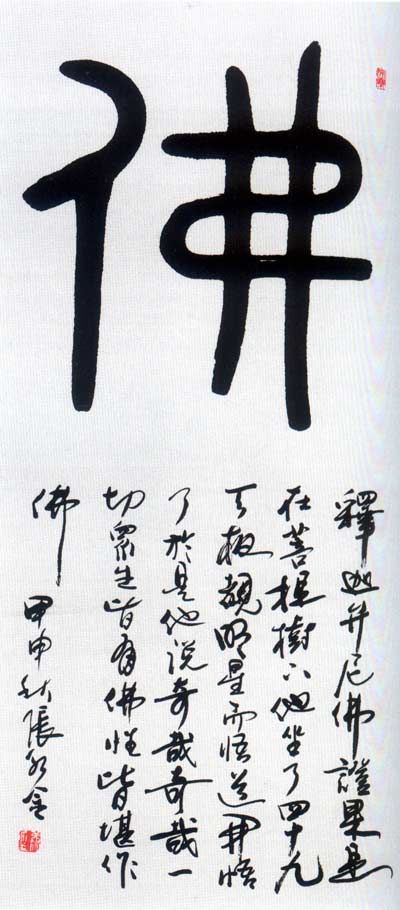 佛
釋迦牟尼佛證果是
在菩提樹下他坐了四十九
天覩明星而悟道開悟
了於是他說奇哉奇哉一
切眾生皆有佛性皆堪作
佛 甲申秋張